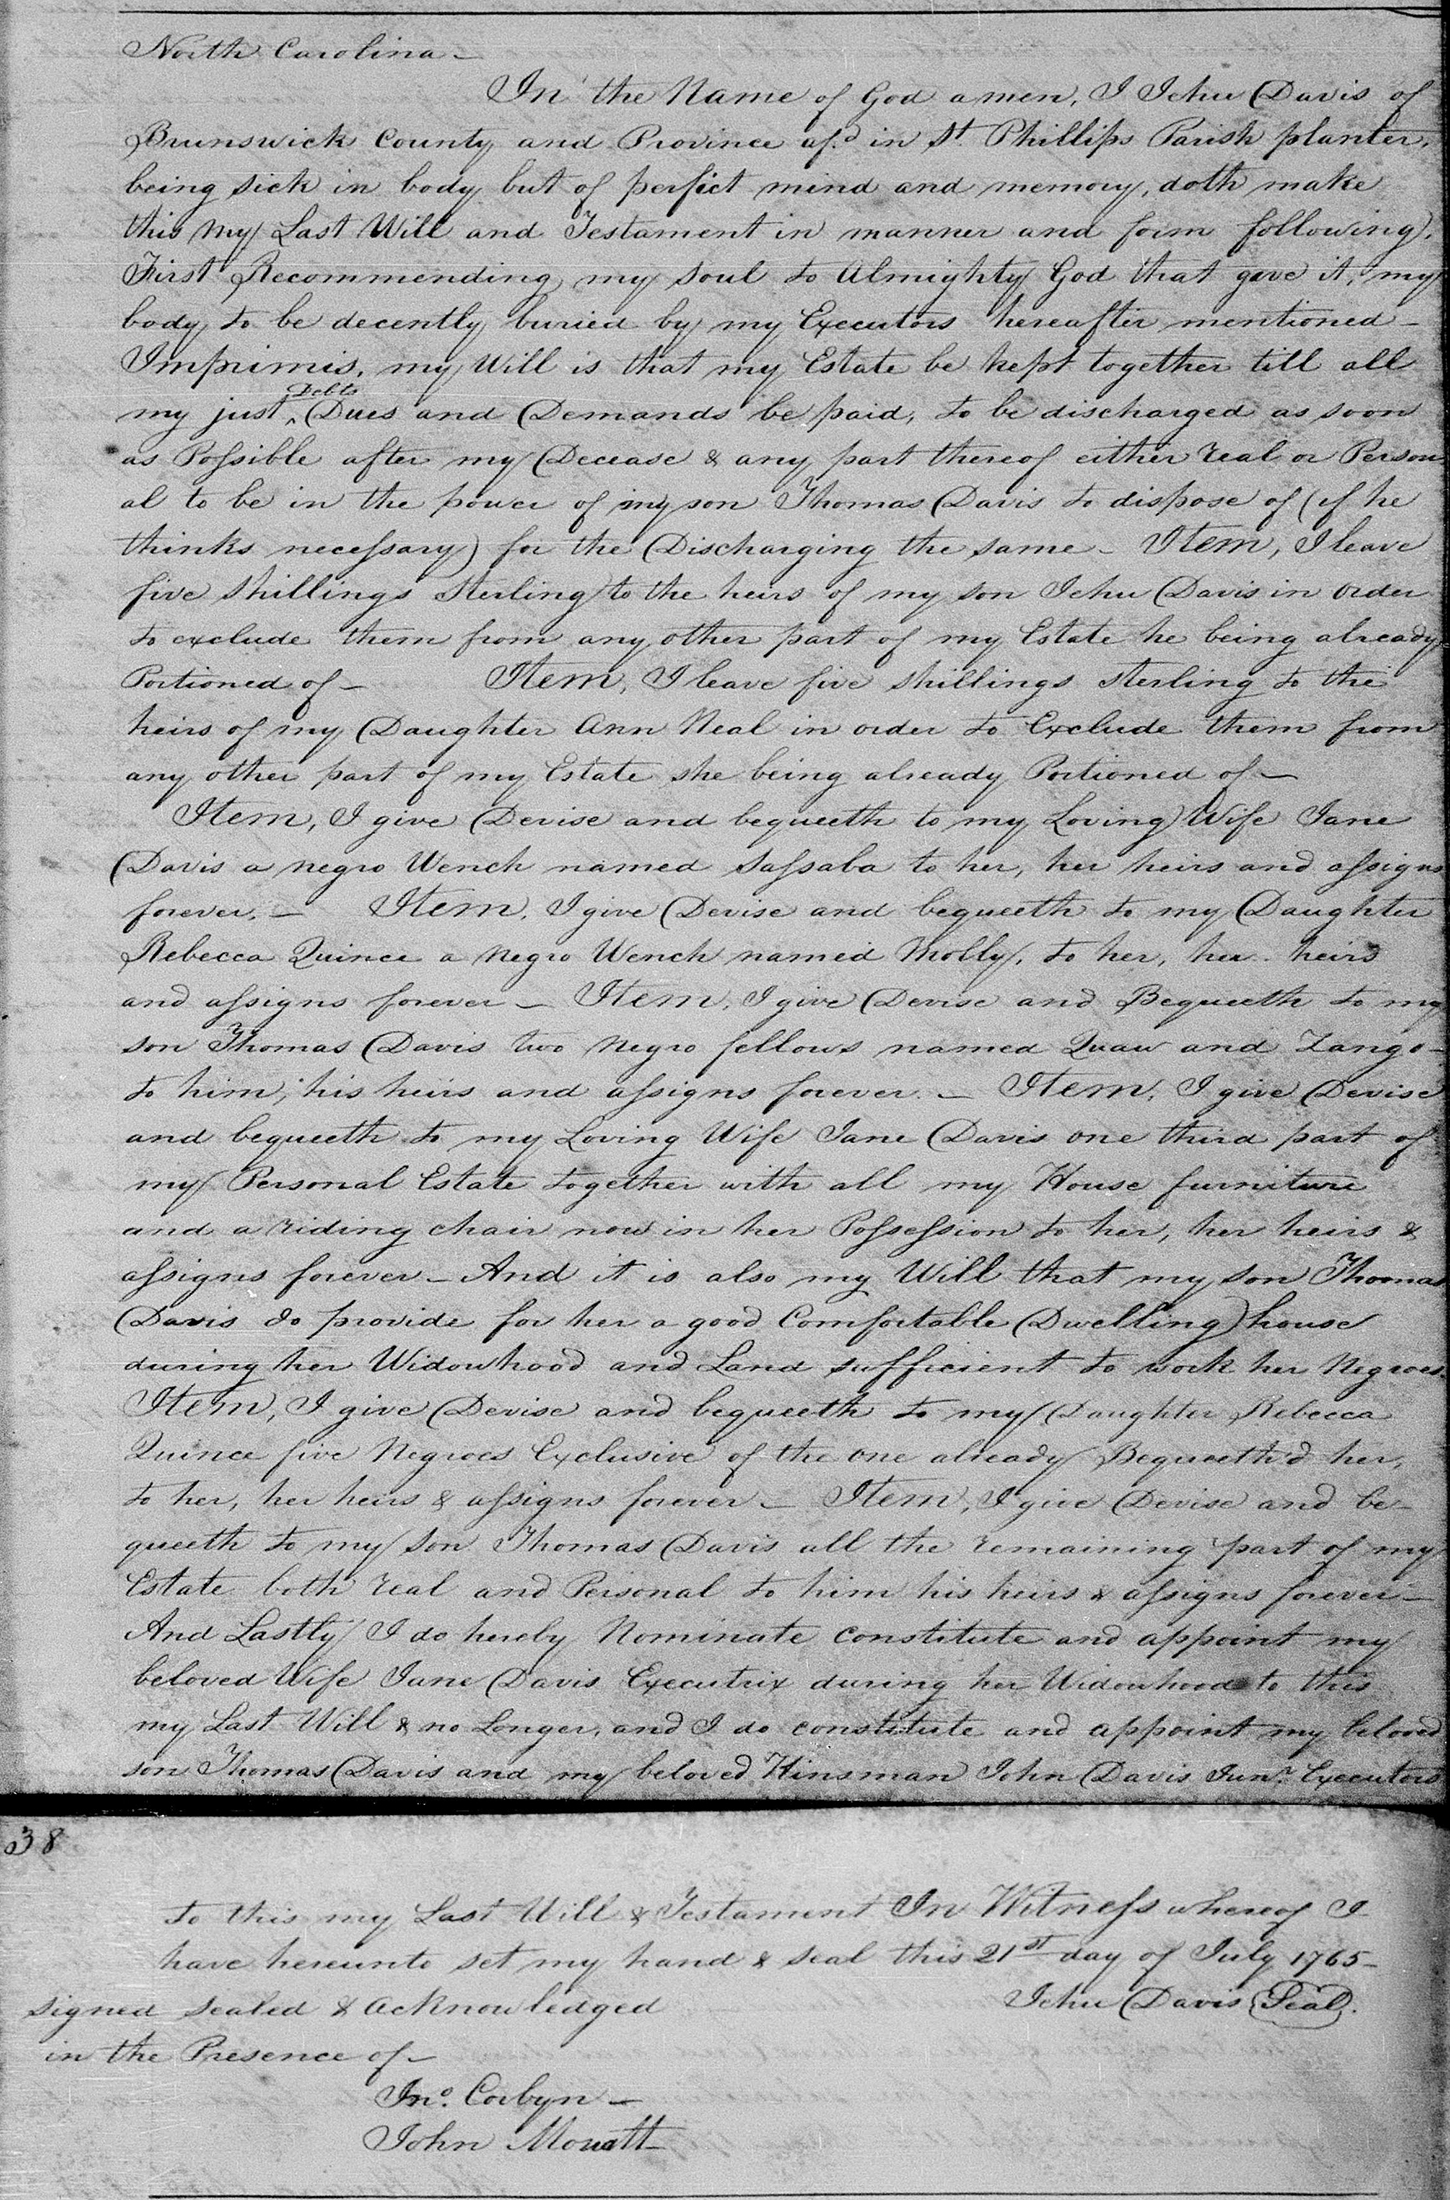 North Carolina –
In the Name of God amen, I Jehu Davis of
Brunswick County and Province afd. in St. Phillips Parish planter,
being sick in body but of perfict mind and memory, doth make
this my Last Will and Testament in manner and form following,
First Recommending my soul to Almighty God that gave it, my
body to be decently buried by my Executors hereafter mentioned –
Imprimis, my Will is that my Estate be kept together till all
my just ^Debts Dues and Demands be paid, to be discharged as soon
as Possible after my Decease & any part thereof either real or Person
al to be in the power of my son Thomas Davis to dispose of (if he
thinks necessary) for the Discharging the same – Item, I leave
five shillings Sterling to the heirs of my son Jehu Davis in order
to exclude them from any other part of my Estate he being already
Portioned of – Item, I leave five shillings sterling to the
heirs of my Daughter Ann Neal in order to Exclude them from
any other part of my Estate she being already Portioned of –
Item, I give Devise and bequeeth to my Loving Wife Jane
Davis a negro Wench named Sassaba to her, her heirs and assigns
forever. – Item, I give Devise and bequeeth to my Daughter
Rebecca Quince a Negro Wench named Molly, to her, her heirs
and assigns forever – Item, I give Devise and Bequeeth to my
son Thomas Davis two Negro fellows named Quaw and Zango –
to him, his heirs and assigns forever. – Item, I give Devise
and bequeeth to my Loving Wife Jane Davis one third part of
my Personal Estate together with all my House furniture
and a riding chair now in her Possession to her, her heirs &
assigns forever – And it is also my Will that my son Thomas
Davis do provide for her a good Comfortable Dwelling house
during her Widowhood and Land sufficient to work her Negroes.
Item, I give Devise and bequeeth to my Daughter Rebecca
Quince five Negroes Exclusive of the one already Bequeeth'd her,
to her, her heirs & assigns forever – Item, I give Devise and be–
queeth to my son Thomas Davis all the remaining part of my
Estate both real and Personal to him his heirs & assigns forever –
And Lastly I do hereby Nominate constitute and appoint my
beloved Wife Jane Davis Executrix during her Widowhood to this
my Last Will & no Longer, and I do constitute and appoint my beloved
son Thomas Davis and my beloved Kinsman John Davis Junr. Executors
38
to this my Last Will & Testament In Witness whereof I
have hereunto set my hand & seal this 21st day of July 1765 –
signed sealed & Acknowledged Jehu Davis Seal.
in the Presence of –
Jno. Corbyn –
John Mouatt